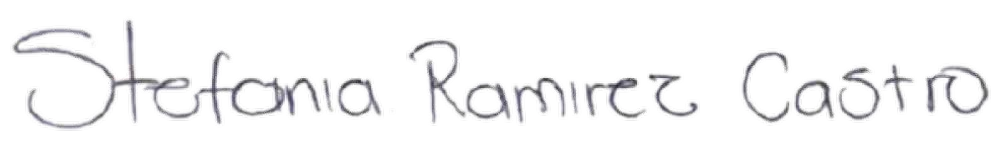 Stefania Ramirez Castro